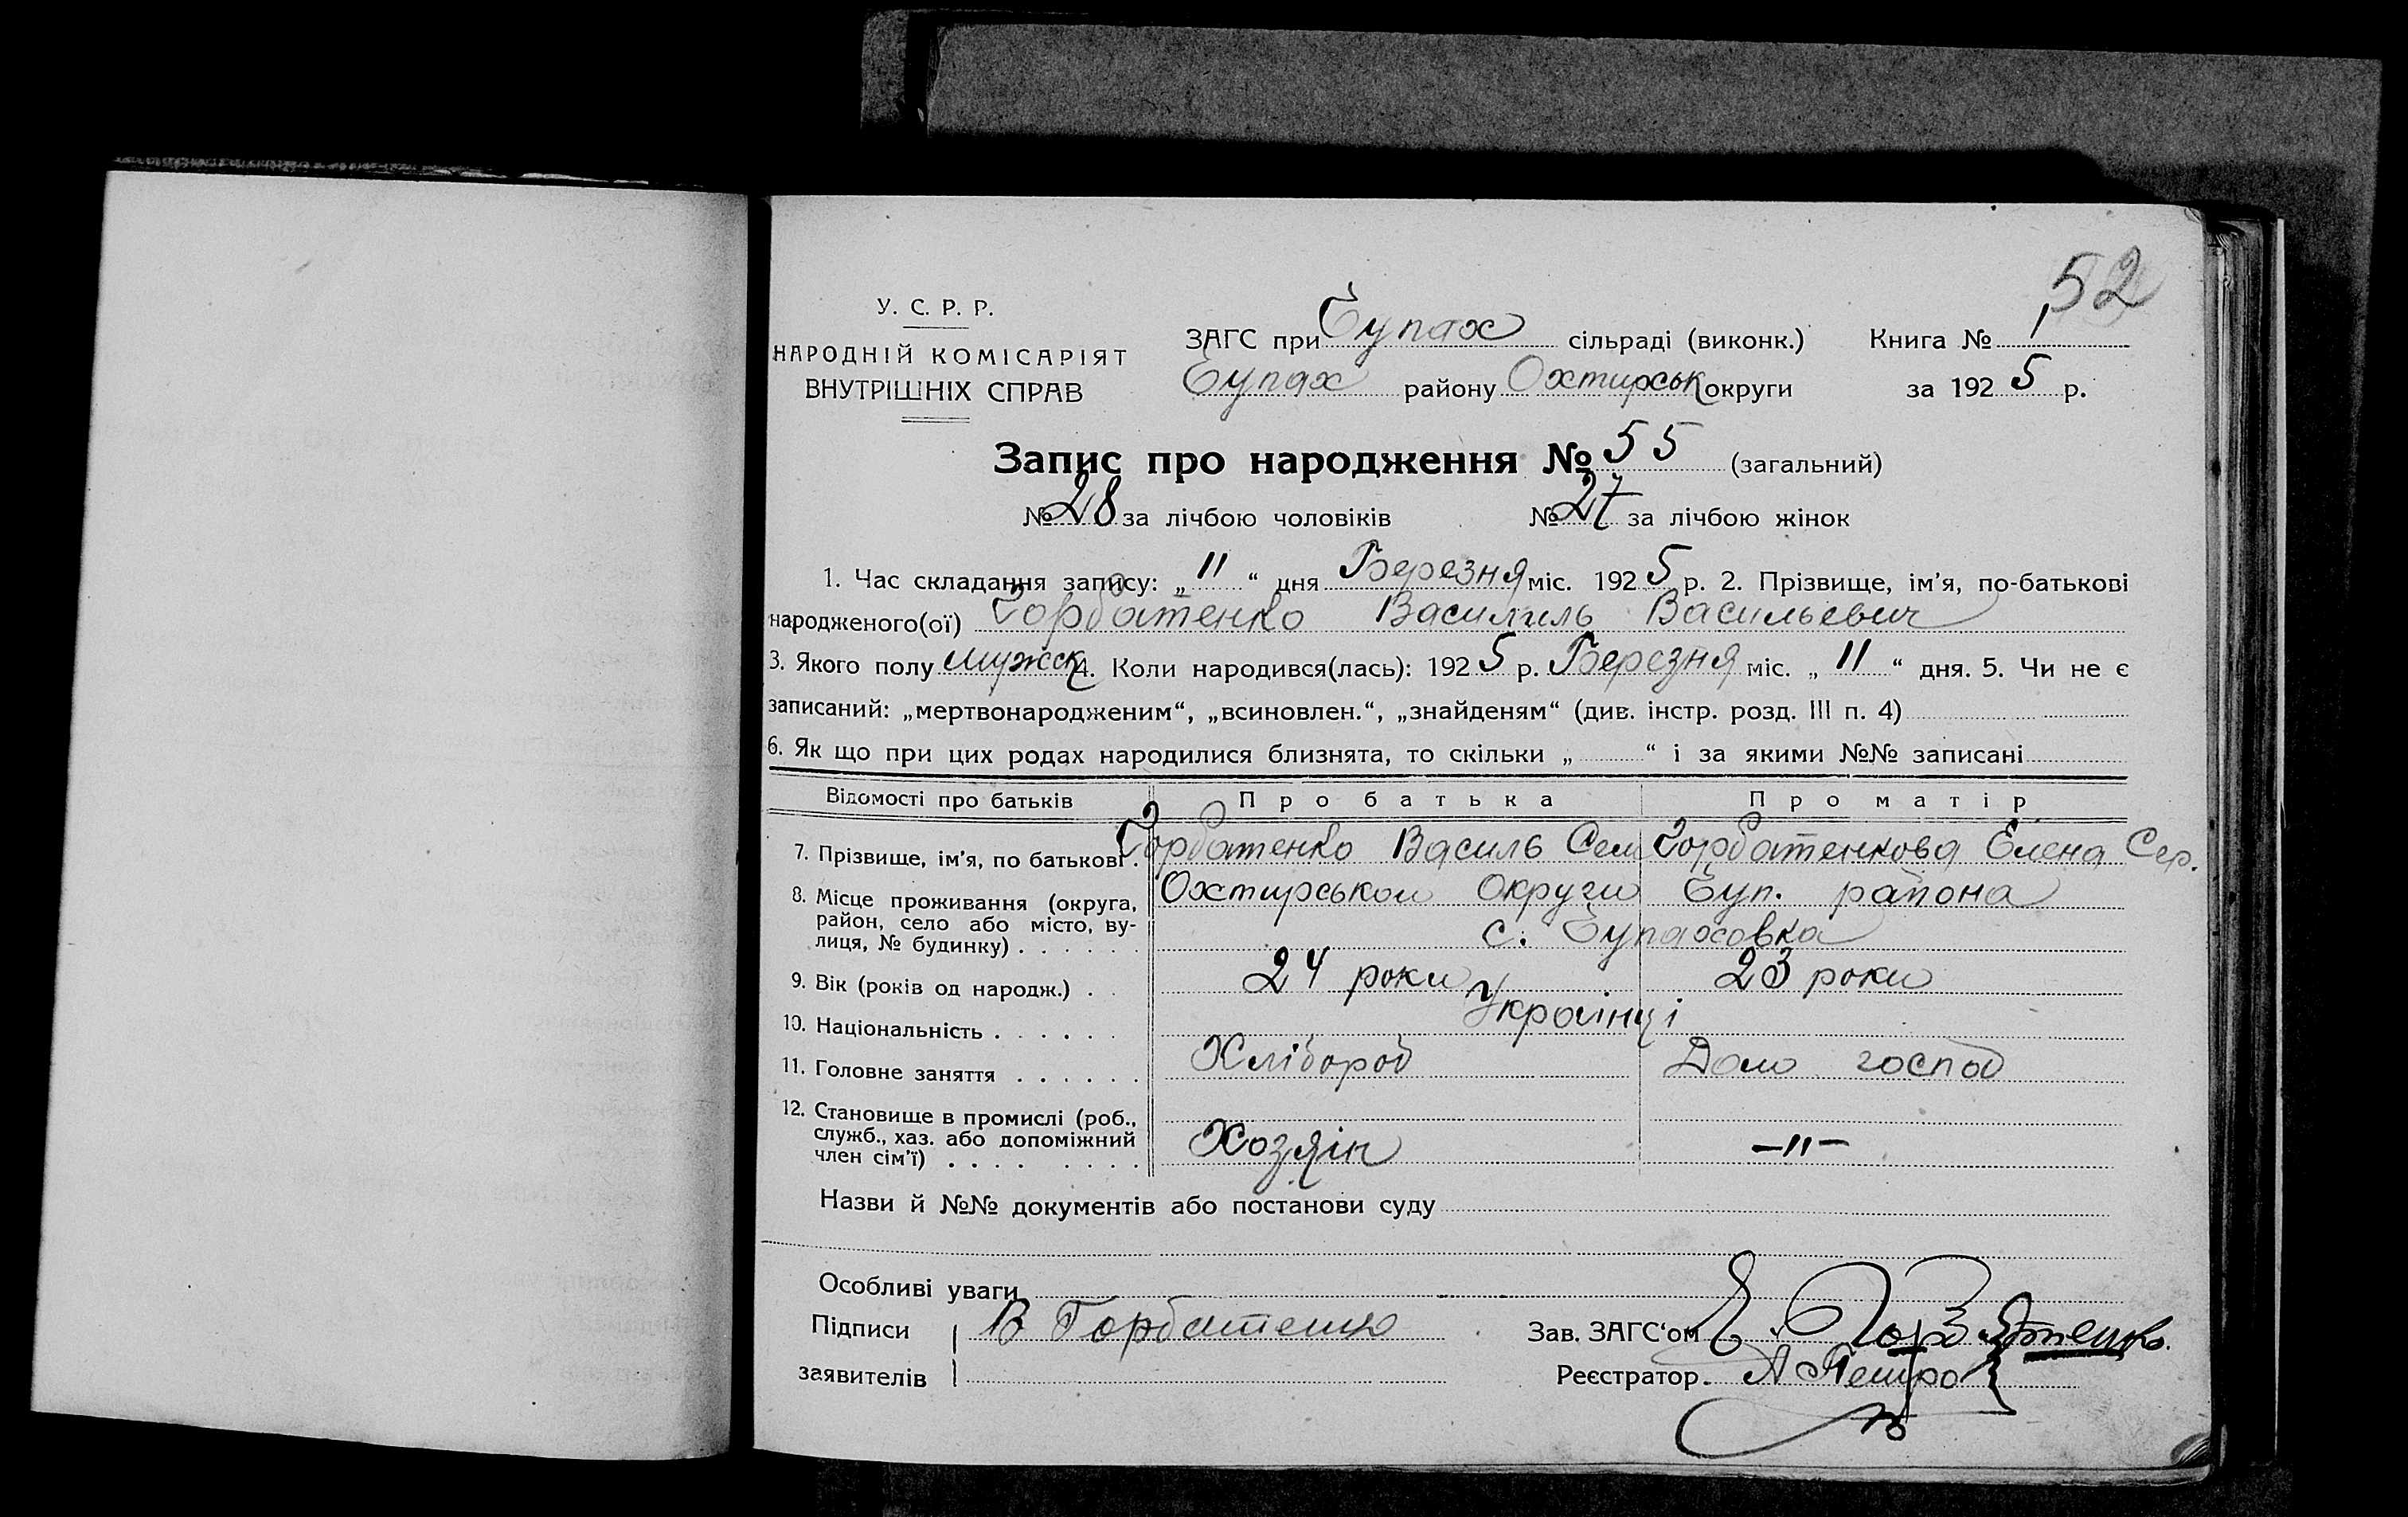 52
У. С. Р. Р.
НАРОДНІЙ КОМІСАРІЯТ
ВНУТРІШНІХ СПРАВ
ЗАГС при Гупах сільраді (виконк.) Книга № 1
Гупах району Охтирськ округи за 1925 р.
Запис про народження № 55 (загальний)
№ 28 за лічбою чоловіків № 27 за лічбою жінок
1. Час складання запису: „11“ дня Березня міс. 1925 р. 2. Прізвище, ім’я, по-батькові
народженого(ої) Горбатенко Василиль Васильевич
3. Якого полу мужск 4. Коли народився(лась): 1925 р. Березня міс. „11“ дня. 5. Чи не є
записаний: „мертвонародженим“, „всиновлен.“, „знайденям“ (див. інстр. розд. III п. 4)
6. Як що при цих родах народилися близнята, то скільки „ “ і за якими №№ записані
Відомості про батьків Про батька Про матір
7. Прізвище, ім’я, по батькові. Горбатенко Василь Сем Горбатенкова Елена Сер.
8. Місце проживання (округа, Охтирськои Округи Гуп. района
район, село або місто, ву-
лиця, № будинку) . . . . . . с. Гупаховка
9. Вік (років од народж.) . . 24 роки 23 роки
10. Національність . . . . . . Украінці
11. Головне заняття . . . . . . Хлібороб Дом господ
12. Становище в промислі (роб.,
служб., хаз. або допоміжний
член сім’ї) . . . . . . . . Хозяін —〃—
Назви й №№ документів або постанови суду
Особливі уваги
Підписи В Горбатенко Зав. ЗАГС‘ом Горбатенко.
заявителів Реєстратор. А Петро